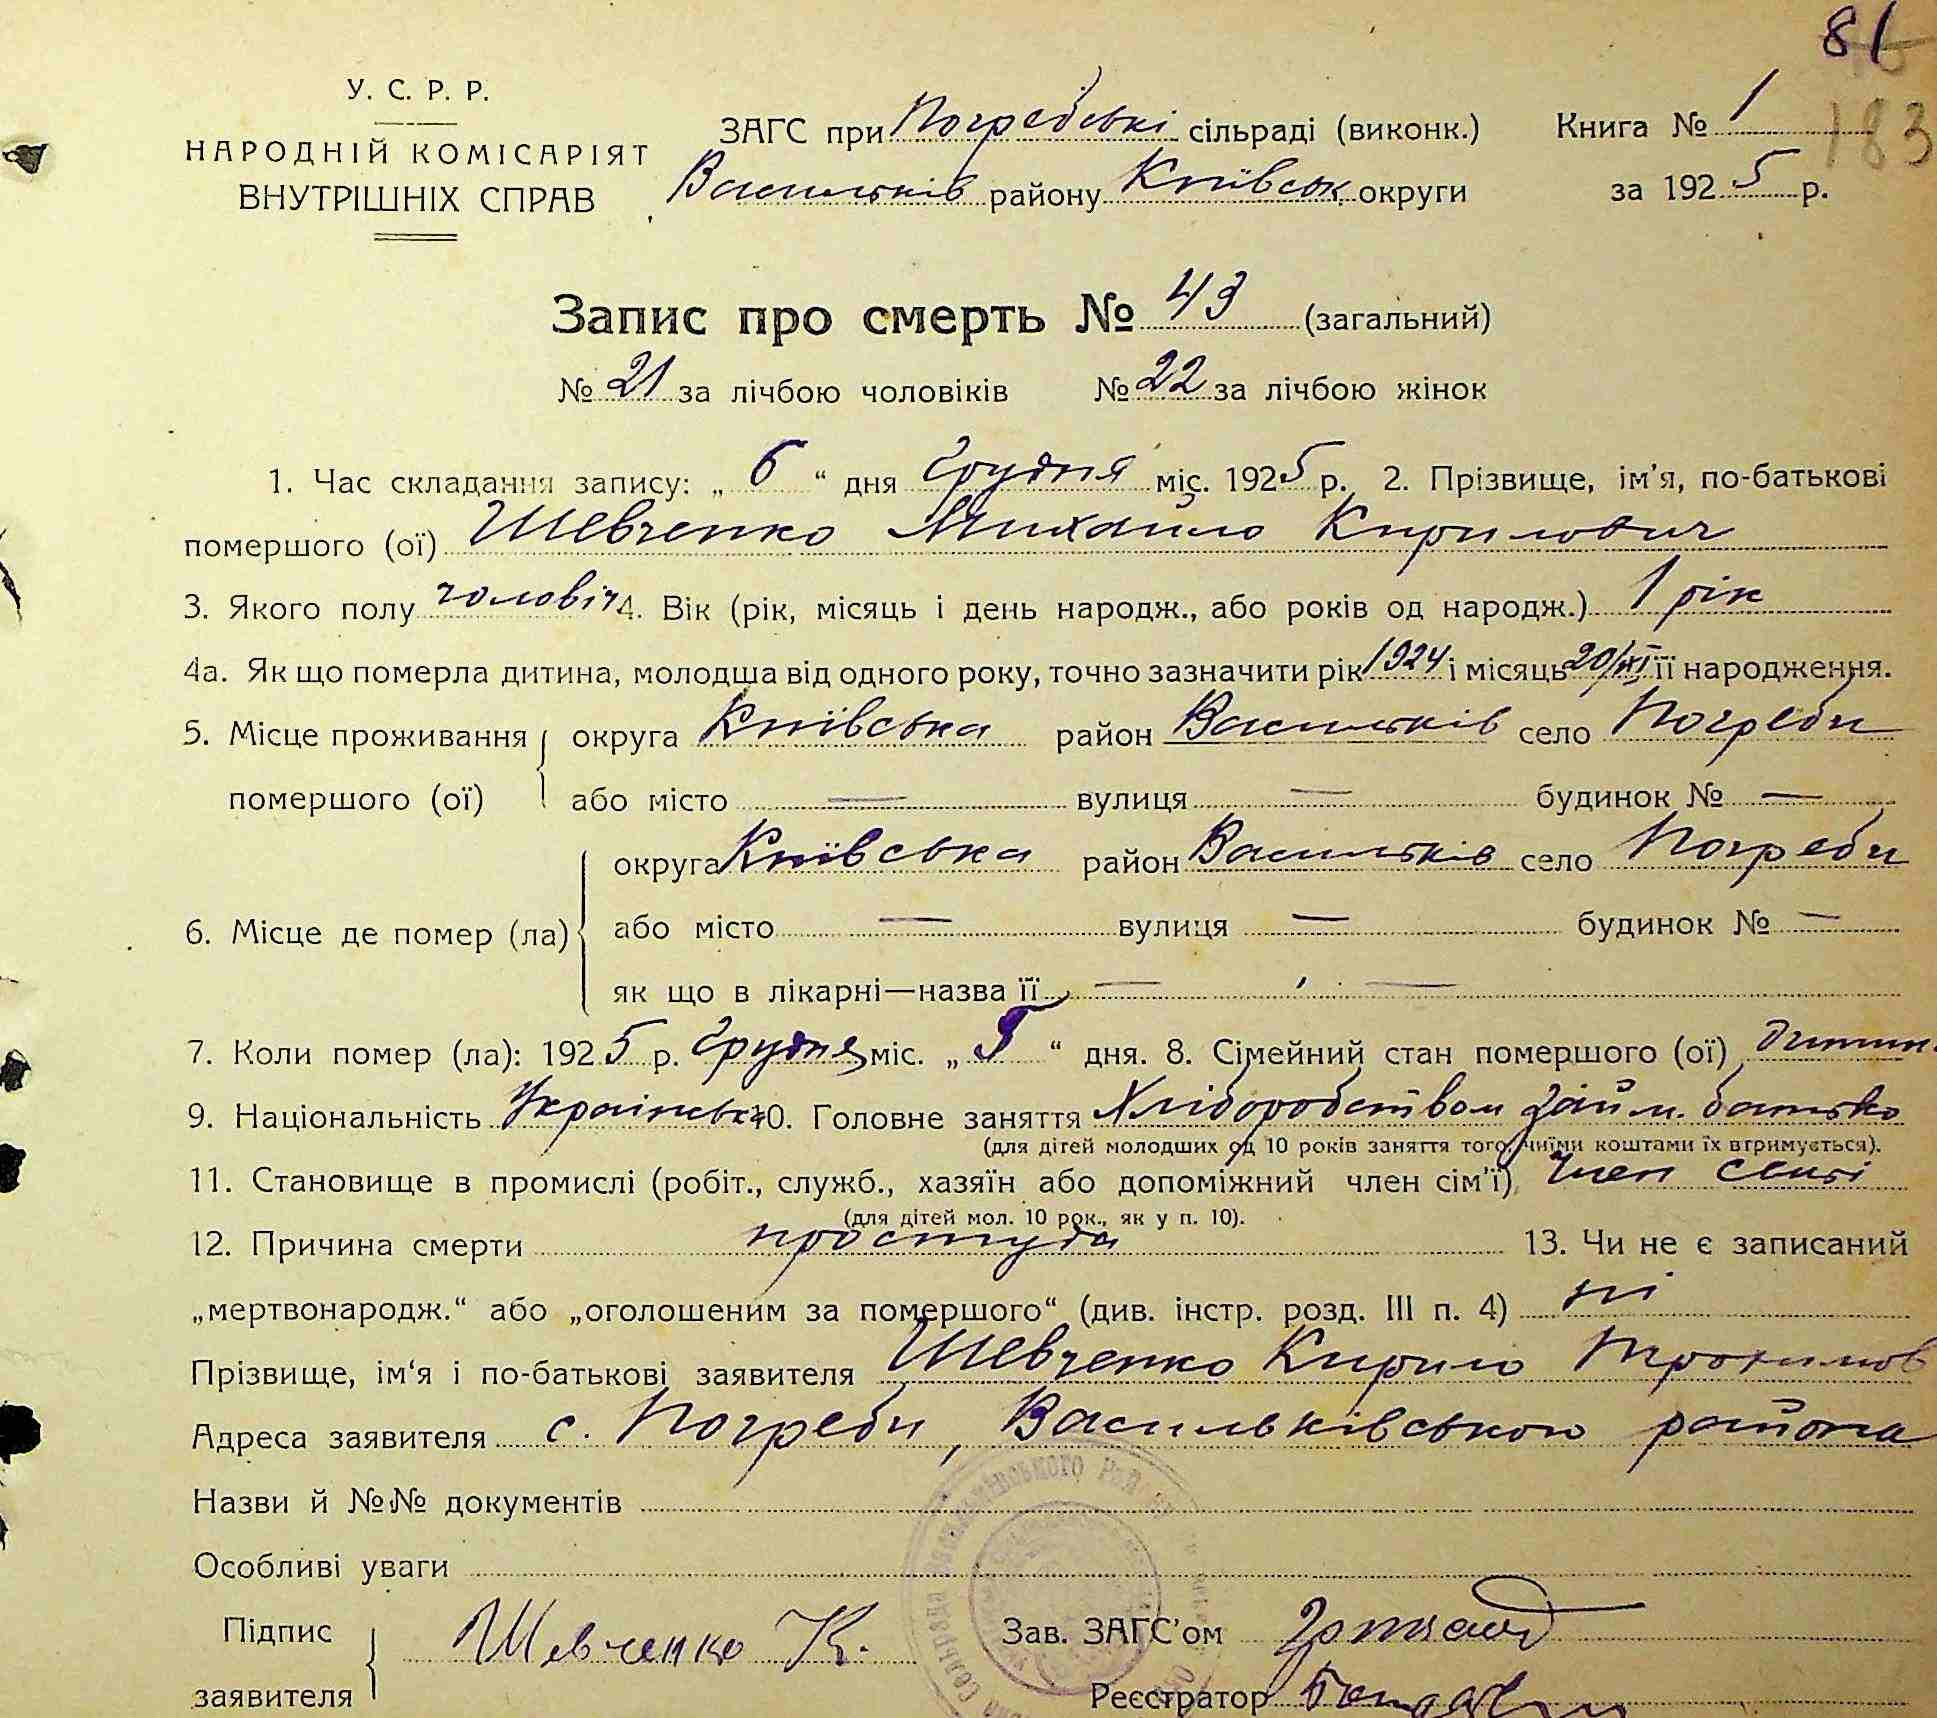 81
183
У. С. Р. Р.
НАРОДНІЙ КОМІСАРІЯТ
ВНУТРІШНІХ СПРАВ
ЗАГС при Погребські сільраді (виконк.) Книга № 1
Васильків району Київськ. округи за 1925 р.
Запис про смерть № 43 (загальний)
№ 21 за лічбою чоловіків № 22 за лічбою жінок
1. Час складання запису: „ 6 “ дня Грудня міс. 1925 р. 2. Прізвище, ім’я, по-батькові
помершого (ої) Шевченко Михайло Кирилович
3. Якого полу чоловіч 4. Вік (рік, місяць і день народж., або років од народж.) 1 рік
4а. Як що померла дитина, молодша від одного року, точно зазначити рік 1924 і місяць 20/XI її народження.
5. Місце проживання округа Київська район Васильків село Погреби
помершого (ої) або місто — вулиця — будинок № —
округа Київська район Васильків село Погреби
6. Місце де помер (ла) або місто — вулиця — будинок № —
як що в лікарні—назва її — —
7. Коли помер (ла): 1925 р. Грудня міс. „ “ дня. 8. Сімейний стан помершого (ої) дитин.
9. Національність Українська 10. Головне заняття Хліборобством займ. батько
(для дітей молодших од 10 років заняття того, чиїми коштами їх втримується).
11. Становище в промислі (робіт., служб., хазяїн або допоміжний член сім’ї) член сем’ї
(для дітей мол. 10 рок., як у п. 10).
12. Причина смерти простуда 13. Чи не є записаний
„мертвонародж.“ або „оголошеним за помершого“ (див. інстр. розд. III п. 4) ні
Прізвище, ім‘я і по-батькові заявителя Шевченко Кирило Трохимов
Адреса заявителя с. Погреби, Васильківського района
Назви й №№ документів
Особливі уваги
Підпис Шевченко К. Зав. ЗАГС’ом
заявителя Реєстратор